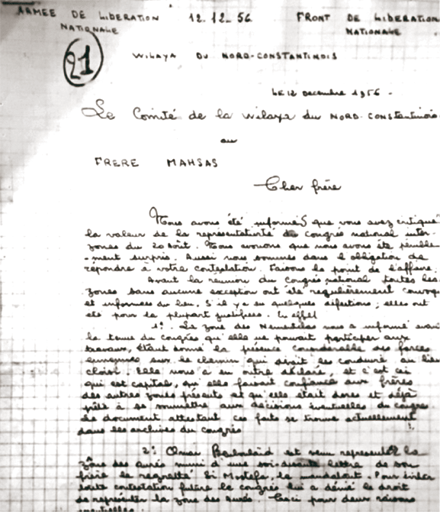 ARMEE DE LIBERATION 12.12.56 FRONT DE LIBERATION
NATIONALE NATIONALE
21
WILAYA DU NORD-CONSTANTINOIS
LE 12 Décembre 1956 -
Le Comité de la Wilaya du NORD-CONSTANTINOIS
au
FRERE MAHSAS
Cher frère
Nous avons été informés que vous avez critiqué
la valeur de la représentativité du congrès national inter-
zones du 20 août. Nous avouons que nous avons été pénible-
-ment surpris. Aussi nous sommes dans l'obligation de
répondre à votre contestation. Faisons le point de l'affaire.
Avant la réunion du Congrès national toutes les
zones sans aucune exception ont été régulièrement
et informées du lieu. S'il y a eu quelques défections, elles ont
été pour la plupart justifiées. En effet
1°. La zone des Nemenchas nous a informé avant
la tenue du congrès qu'elle ne pouvait participer aux
travaux, étant donné la présence considérable des forces
ennemies sur le chemin qui devait la conduire au lieu
choisi. Elle nous a en outre déclaré, et c'est ici
qui est capital, qu'elle faisait confiance aux frères
des autres zones présents et qu'elle était d'ores et déjà
prête à se soumettre aux décisions éventuelles du congrès
Le document attestant ces faits se trouve actuellement
dans les archives du congrès
2°. Omar Benboulaïd est venu représenter la
zône des Aurès muni d'une soi-disante lettre de son
frère le regretté Si Mostefa, le mandatant. Pour éviter
toute contestation future le congrès lui a dénié le droit
de représenter la zone des Aurès. Ceci pour deux raisons